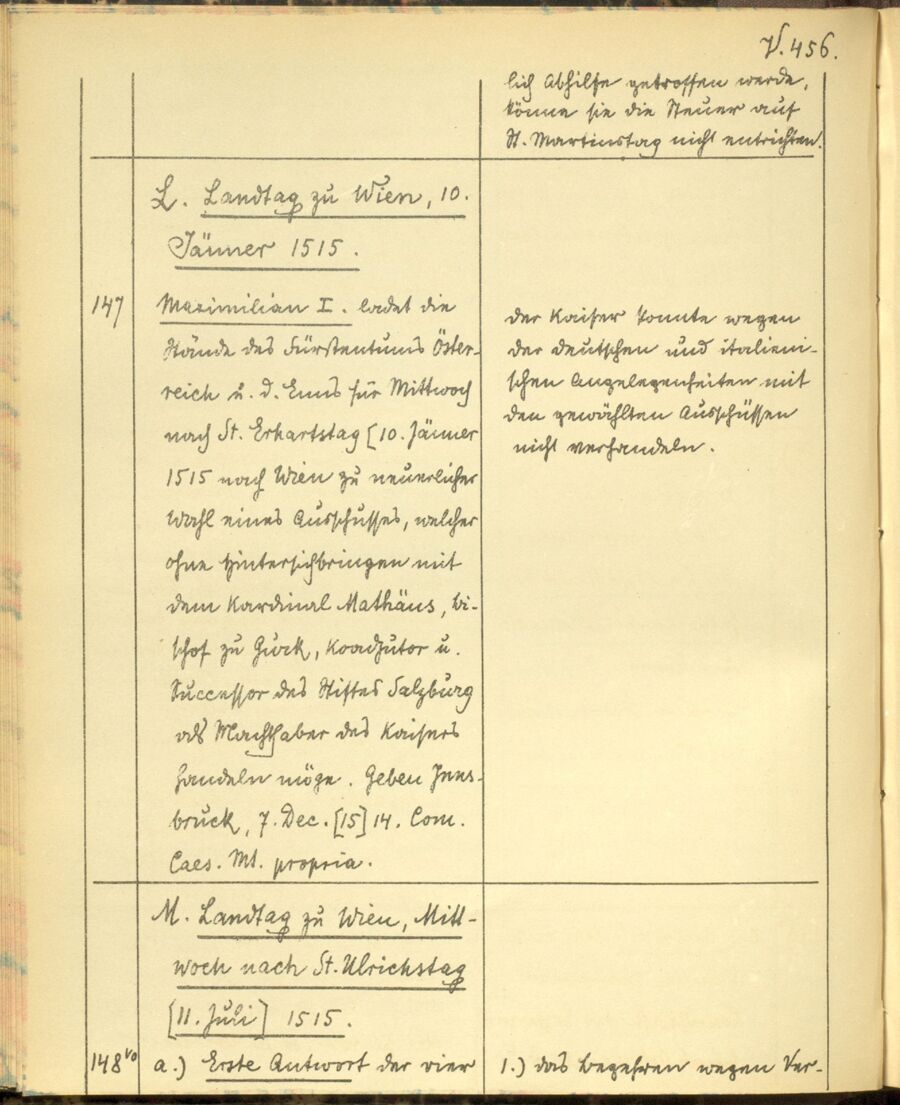 V. 456.
lich Abhilfe getroffen werde,
könne sie die Steuer auf
St. Martinstag nicht entrichten.
L. Landtag zu Wien, 10.
Jänner 1515.
147
Maximilian I. ladet die
Stände des Fürstentums Öster-
reich u. d. Enns für Mittwoch
nach St. Erhartstag [10. Jänner
1515 nach Wien zu neuerlicher
Wahl eines Ausschusses, welcher
ohne Hintersichbringen mit
dem Kardinal Mathäus, Bi-
schof zu Gurk, Koadjutor u.
Successor des Stiftes Salzburg
als Machthaber des Kaisers
handeln möge. Geben Inns-
bruck, 7. Dec. [15] 14. Com.
Caes. Mt. propria.
der Kaiser konnte wegen
der deutschen und italieni-
schen Angelegenheiten mit
den gewählten Ausschüssen
nicht verhandeln.
M. Landtag zu Wien, Mitt-
woch nach St. Ulrichstag
[11. Juli] 1515.
148 vo
a.) Erste Antwort der vier
1.) das Begehren wegen Ver-